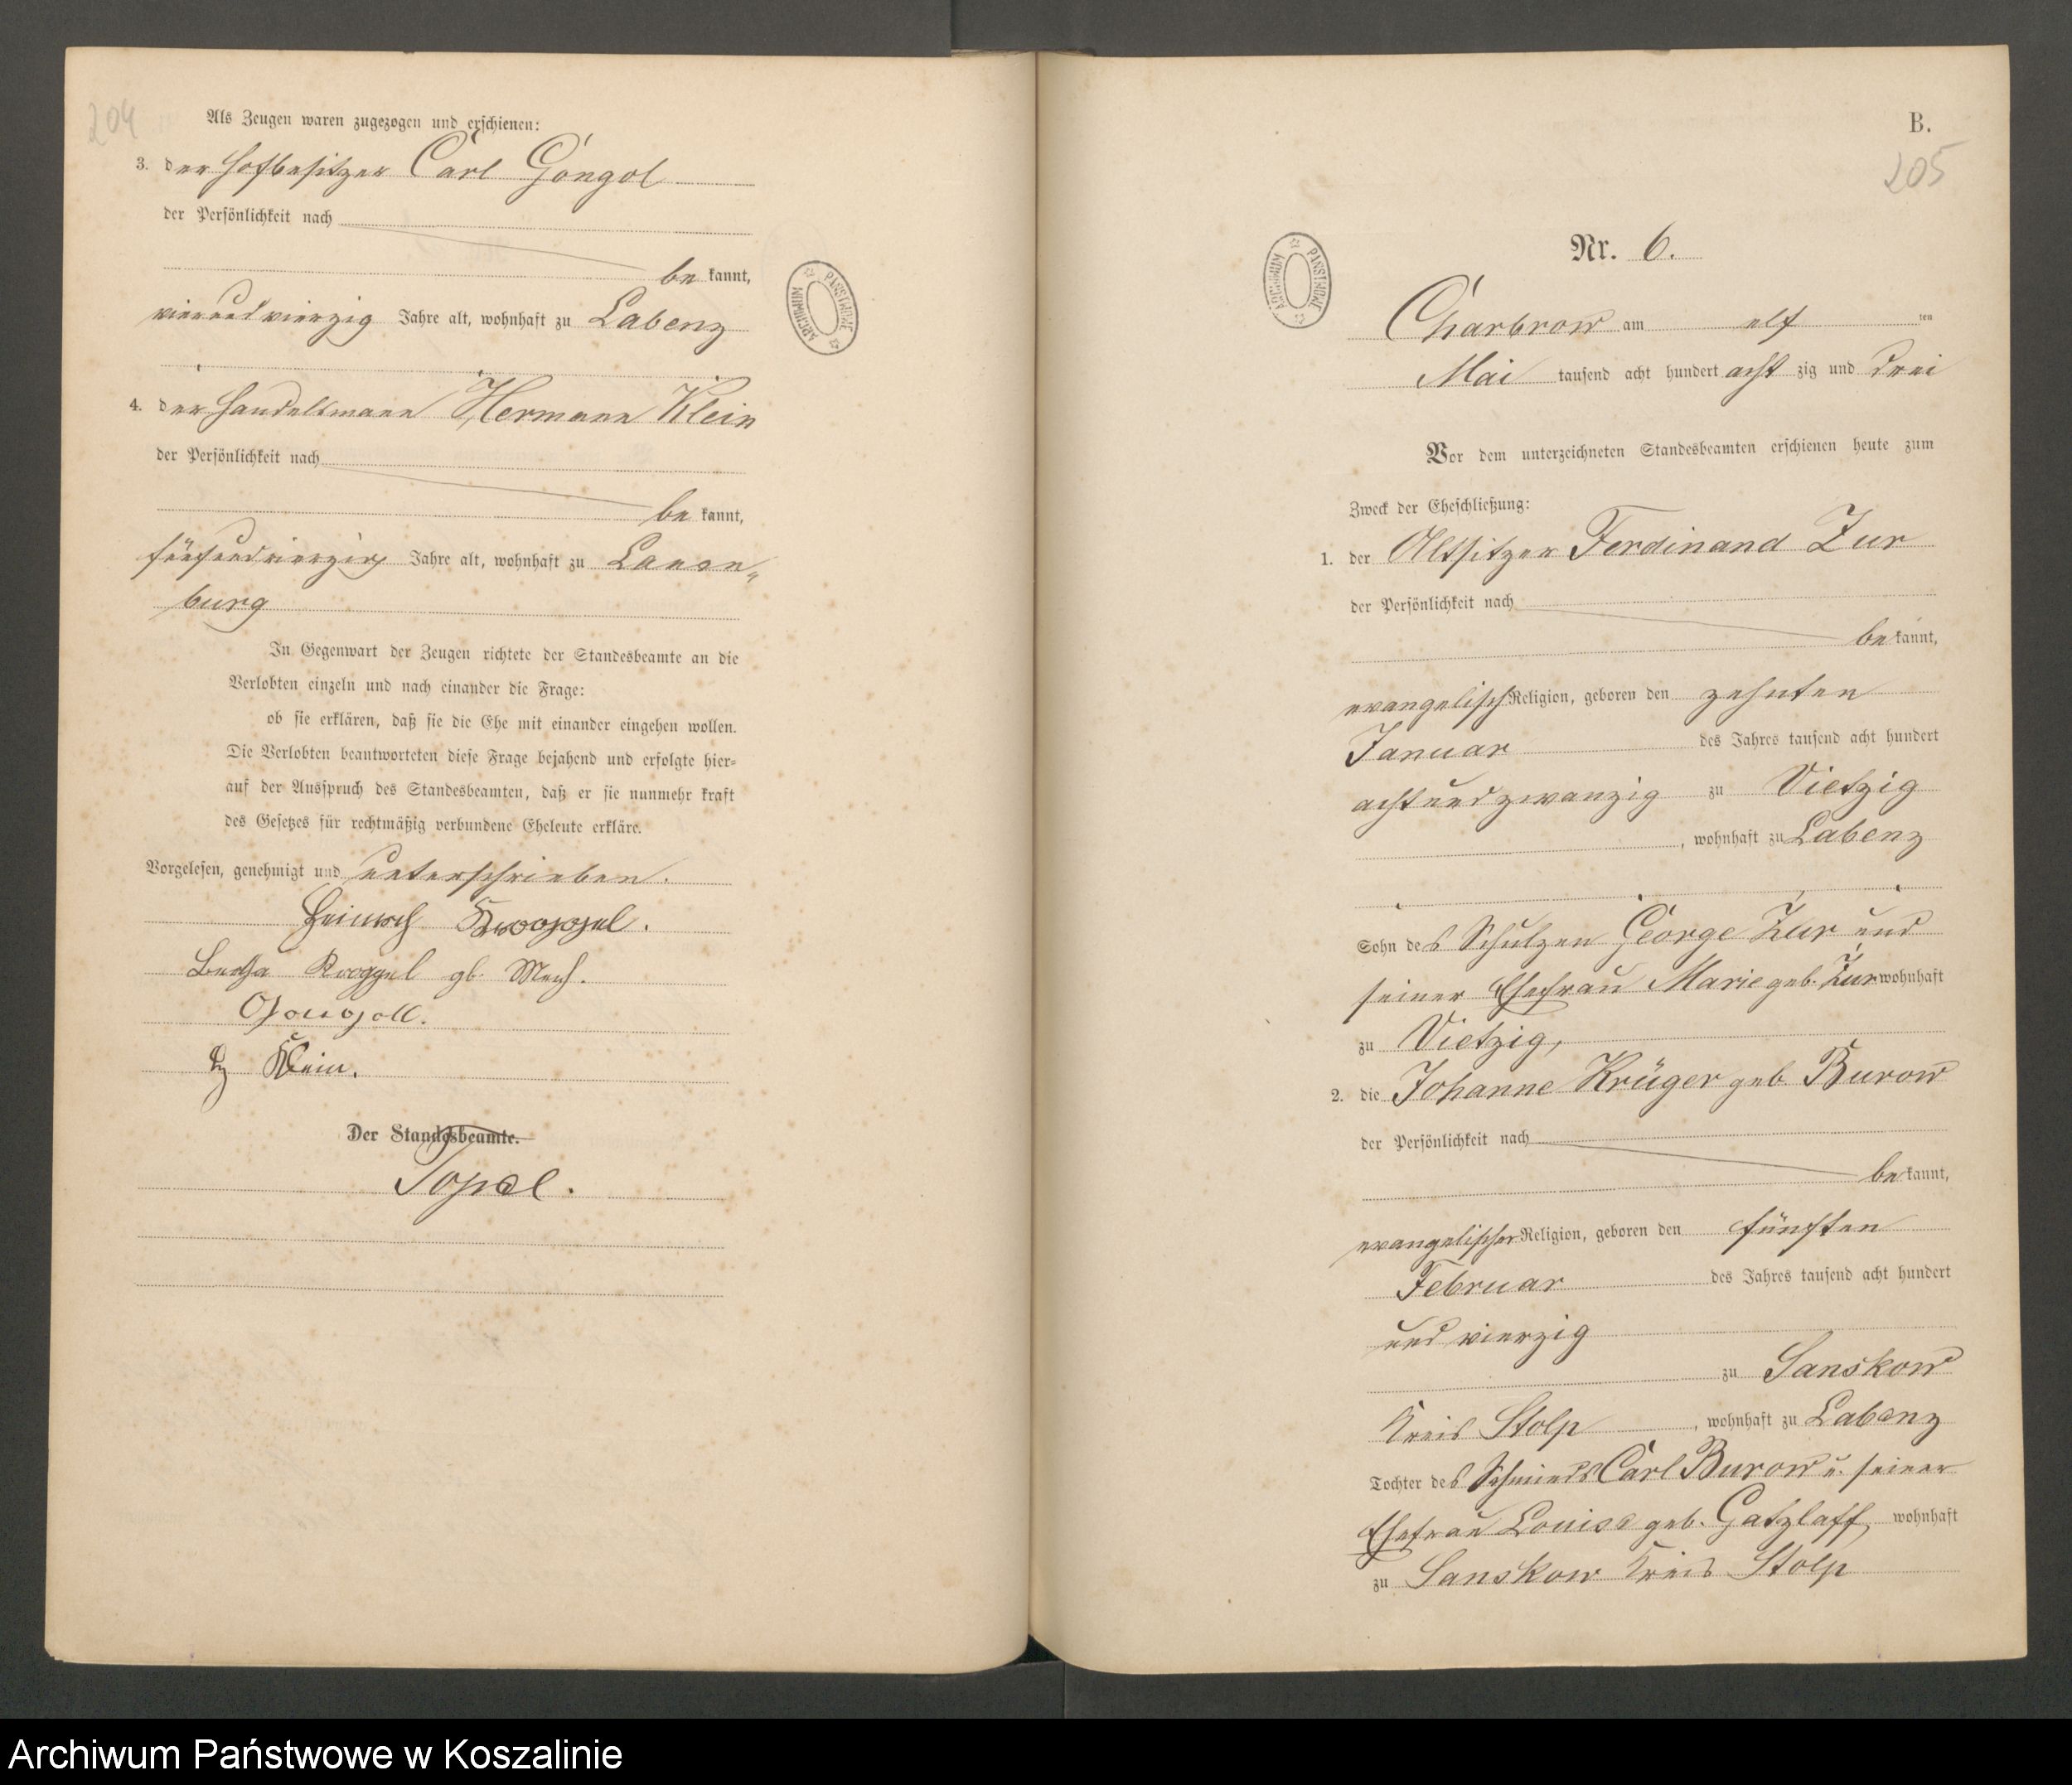 204
Als Zeugen waren zugezogen und erschienen:
3. der Hofbesitzer Carl Gongol
der Persönlichkeit nach
be kannt,
vierundvierzig Jahre alt, wohnhaft zu Labenz
4. der Handelsmann Hermann Klein
der Persönlichkeit nach
be kannt,
fünfundvierzig Jahre alt, wohnhaft zu Lauen„
burg
In Gegenwart der Zeugen richtete der Standesbeamte an die
Verlobten einzeln und nach einander die Frage:
ob sie erklären, daß sie die Ehe mit einander eingehen wollen.
Die Verlobten beantworteten diese Frage bejahend und erfolgte hier=
auf der Ausspruch des Standesbeamten, daß er sie nunmehr kraft
des Gesetzes für rechtmäßig verbundene Eheleute erkläre.
Vorgelesen, genehmigt und unterschrieben.
Heinrich Kroggel.
Bertha Kroggel gb. Mech.
Gongoll.
Klein.
Der Standesbeamte.
Topel.
B.
205
Nr. 6.
ARCHIWUM PAŃSTWOWE
Charbrow am elf ten
Mai tausend acht hundert acht zig und drei
Vor dem unterzeichneten Standesbeamten erschienen heute zum
Zweck der Eheschließung:
1. der Altsitzer Ferdinand Zur
der Persönlichkeit nach
be kannt,
evangelisch Religion, geboren den zehnten
Januar des Jahres tausend acht hundert
achtundzwanzig zu Vietzig
, wohnhaft zu Labenz
Sohn des Schulzen George Zur und
seiner Ehefrau Marie geb. Zur wohnhaft
zu Vietzig,
2. die Johanne Krüger geb Burow
der Persönlichkeit nach
be kannt,
evangelischer Religion, geboren den fünften
Februar des Jahres tausend acht hundert
und vierzig
zu Sanskow
Kreis Stolp, wohnhaft zu Labenz
Tochter des Schmieds Carl Burow u. seiner
Ehefrau Louise geb. Gatzlaff, wohnhaft
zu Sanskow Kreis Stolp
Archiwum Państwowe w Koszalinie